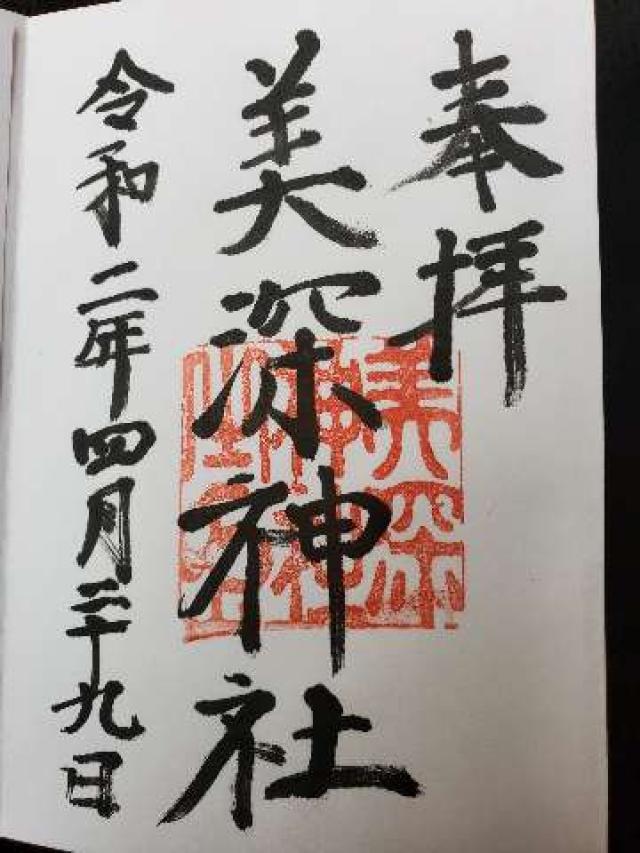 奉拝
美深神社
令和二年四月二十九日
美深
神社